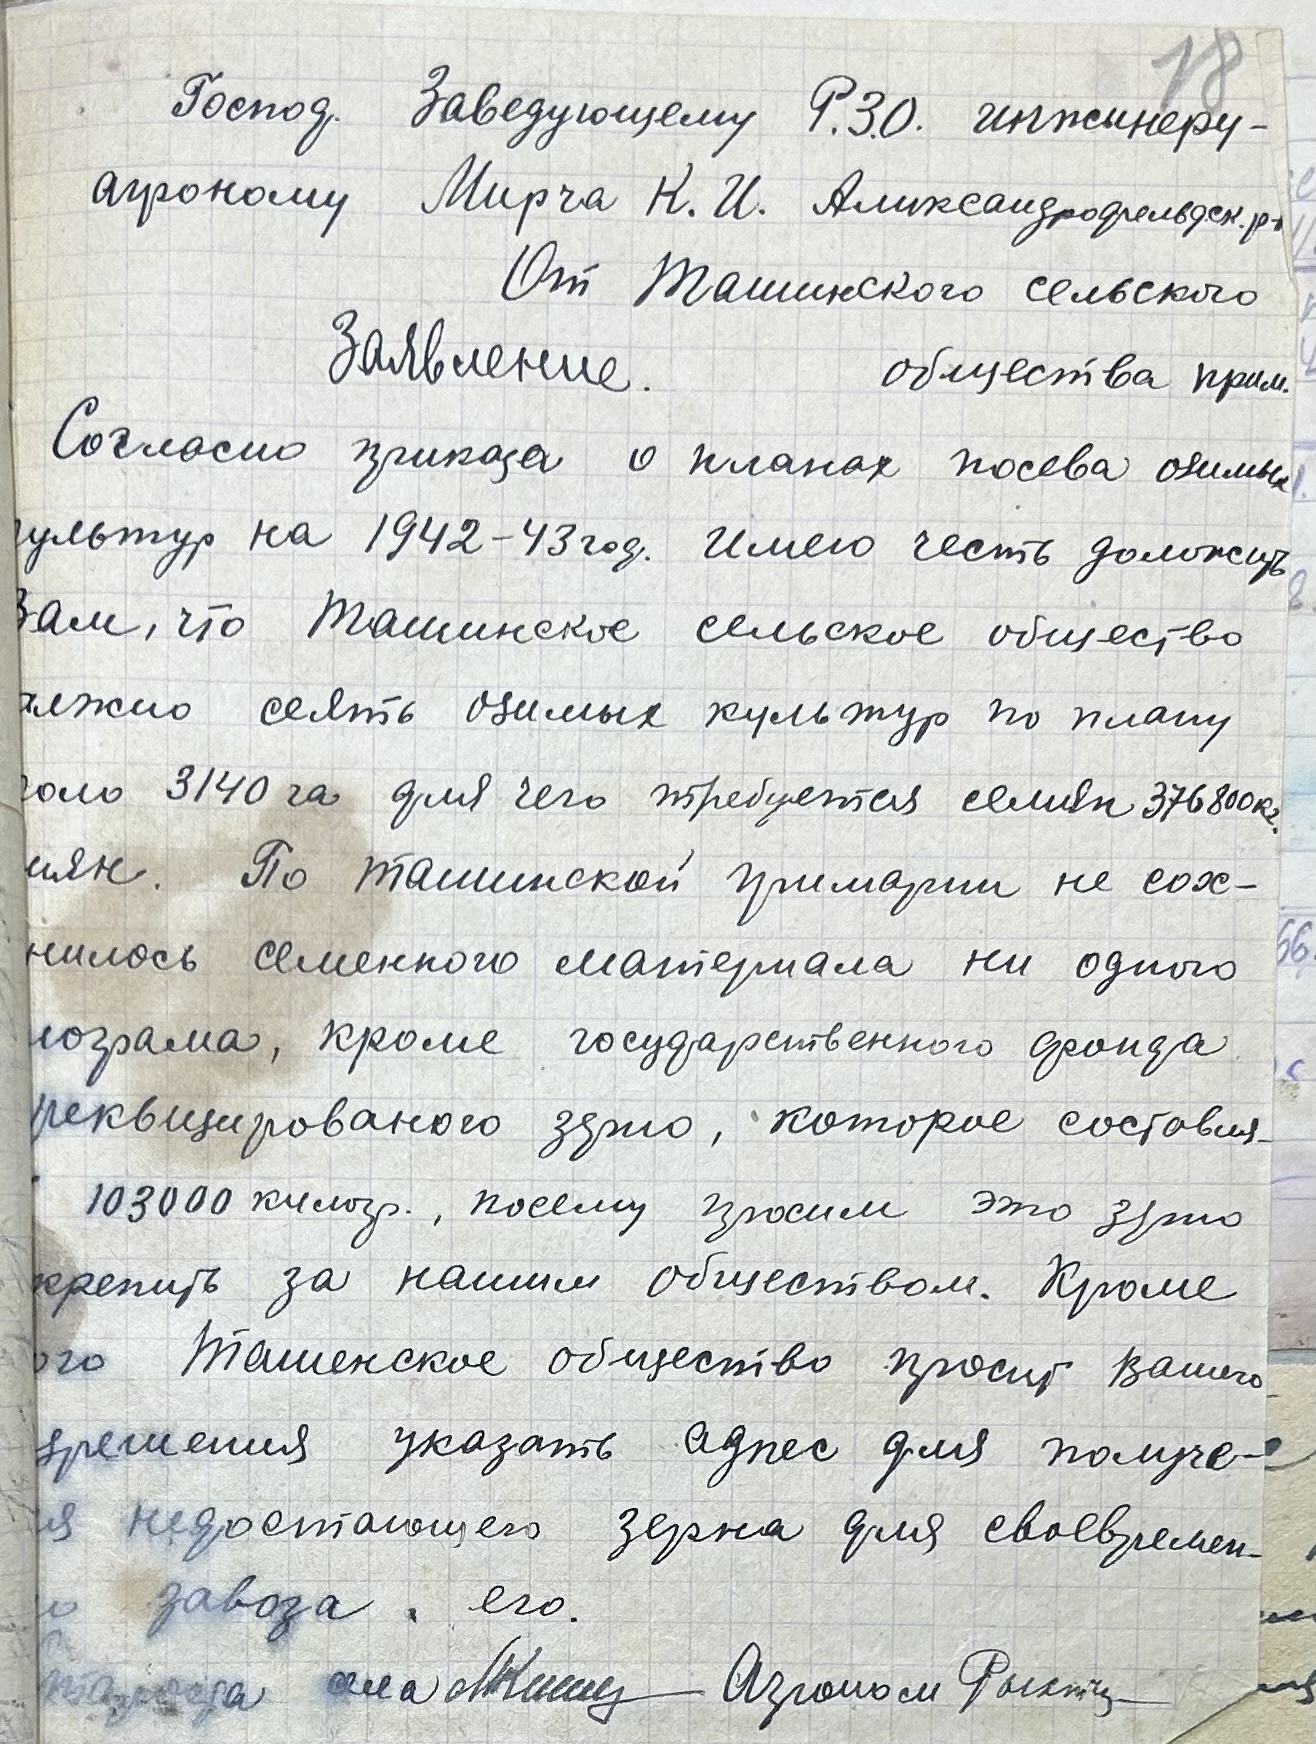 18
Господ. Заведующему Р.З.О. инжинеру-
агроному Мирча К. И. Александрофельдск. р-
От Ташинского сельского
Заявление. общества прим.
Согласно приказа о планах посева озимых
ультур на 1942-43 год. Имею честь доложить
Вам, что Ташинское сельское общество
олжно сеять озимых культур по плану
коло 3140 га для чего требуется семян 376800 кг.
мян. По Ташинской примарии не сох-
нилось семенного материала ни одного
лограма, кроме государственного фонда
реквизированого зерно, которое составля-
103000 килогр., посему просим это зерно
крепить за нашим обществом. Кроме
ого Ташенское общество просит Вашего
зрешения указать адрес для получе-
ия недостающего зерна для своевремен-
о завоза. его.
тароста села Агроном